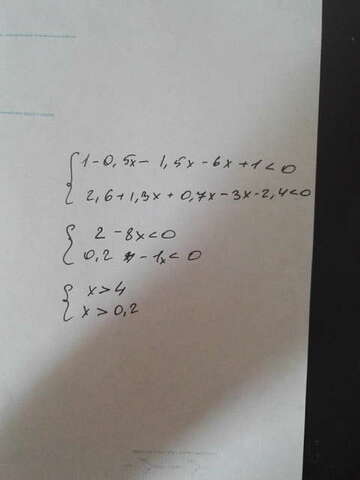 1-0,5x-1,5x-6x+1<0
2,6+1,3x+0,7x-3x-2,4<0
2-8x<0
0,2 -1x<0
x>4
x>0,2